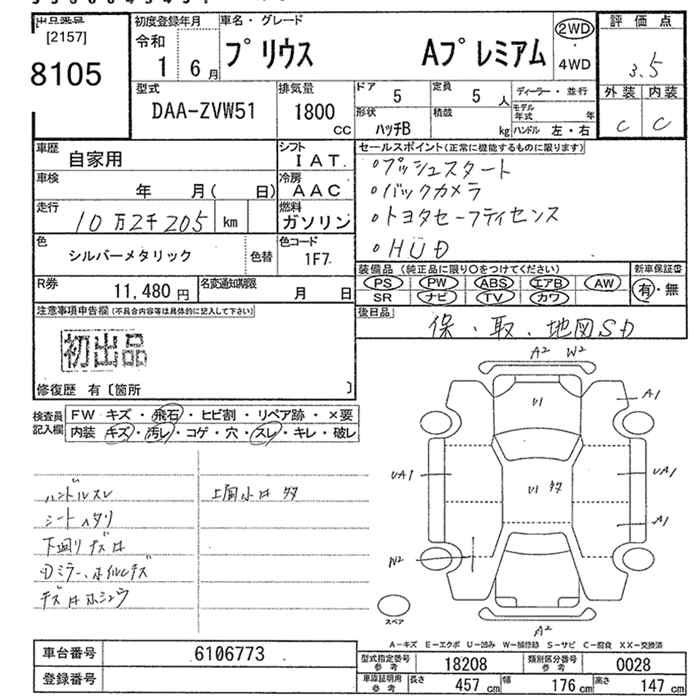 出品番号
[2157]
8105
初度登録年月
令和
1 6月
車名・グレード
プリウス Aプレミアム
2WD
・
4WD
評価点
3.5
外装 内装
C C
型式
DAA-ZVW51
排気量
1800
cc
ドア 5
定員 5人
ディーラー・並行
モデル年式 年
形状
ハッチB
積載 kg
ハンドル 左・右
車歴 自家用
シフト
IAT
車検 年 月( 日)
冷房
AAC
走行 10万2千205 km
燃料
ガソリン
色 シルバーメタリック
色替
色コード
1F7
R券 11,480円
名変通知期限 月 日
セールスポイント(正常に機能するものに限ります)
○プッシュスタート
○バックカメラ
○トヨタセーフティセンス
○HUD
装備品(純正品に限り○をつけてください)
PS PW ABS エアB AW
SR ナビ TV カワ
新車保証書
有・無
後日品
保・取・地図SD
注意事項申告欄(不具合内容等は具体的に記入して下さい)
初出品
修復歴 有〔箇所 〕
検査員記入欄
FW キズ・飛石・ヒビ割・リペア跡・×要
内装 キズ・汚レ・コゲ・穴・スレ・キレ・破レ
ハンドルスレ
シートヘタリ
下廻りキズ
上面小キズ多
A2 W2
U1
A1
UA1
UA1
U1 多
A1
W2
A2
スペア
A-キズ E-エクボ U-凹み W-補修跡 S-サビ C-腐食 XX-交換済
車台番号 6106773
登録番号
型式指定番号参考 18208
類別区分番号参考 0028
車庫証明用参考 長さ 457cm 幅 176cm 高さ 147cm